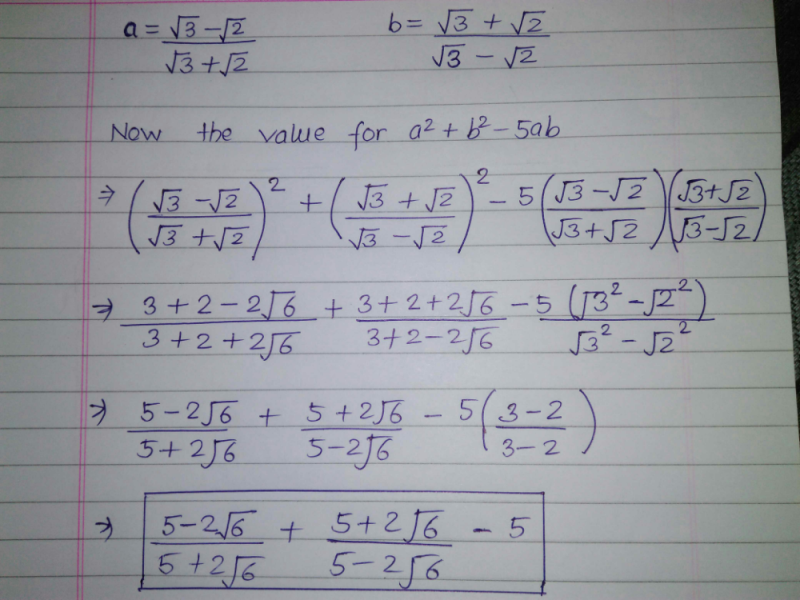 a = (√3 − √2)/(√3 + √2)    b = (√3 + √2)/(√3 − √2)
Now the value for a² + b² − 5ab
⇒ ((√3 − √2)/(√3 + √2))² + ((√3 + √2)/(√3 − √2))² − 5((√3 − √2)/(√3 + √2))((√3 + √2)/(√3 − √2))
⇒ (3 + 2 − 2√6)/(3 + 2 + 2√6) + (3 + 2 + 2√6)/(3 + 2 − 2√6) − 5(√3² − √2²)/(√3² − √2²)
⇒ (5 − 2√6)/(5 + 2√6) + (5 + 2√6)/(5 − 2√6) − 5((3 − 2)/(3 − 2))
⇒ (5 − 2√6)/(5 + 2√6) + (5 + 2√6)/(5 − 2√6) − 5